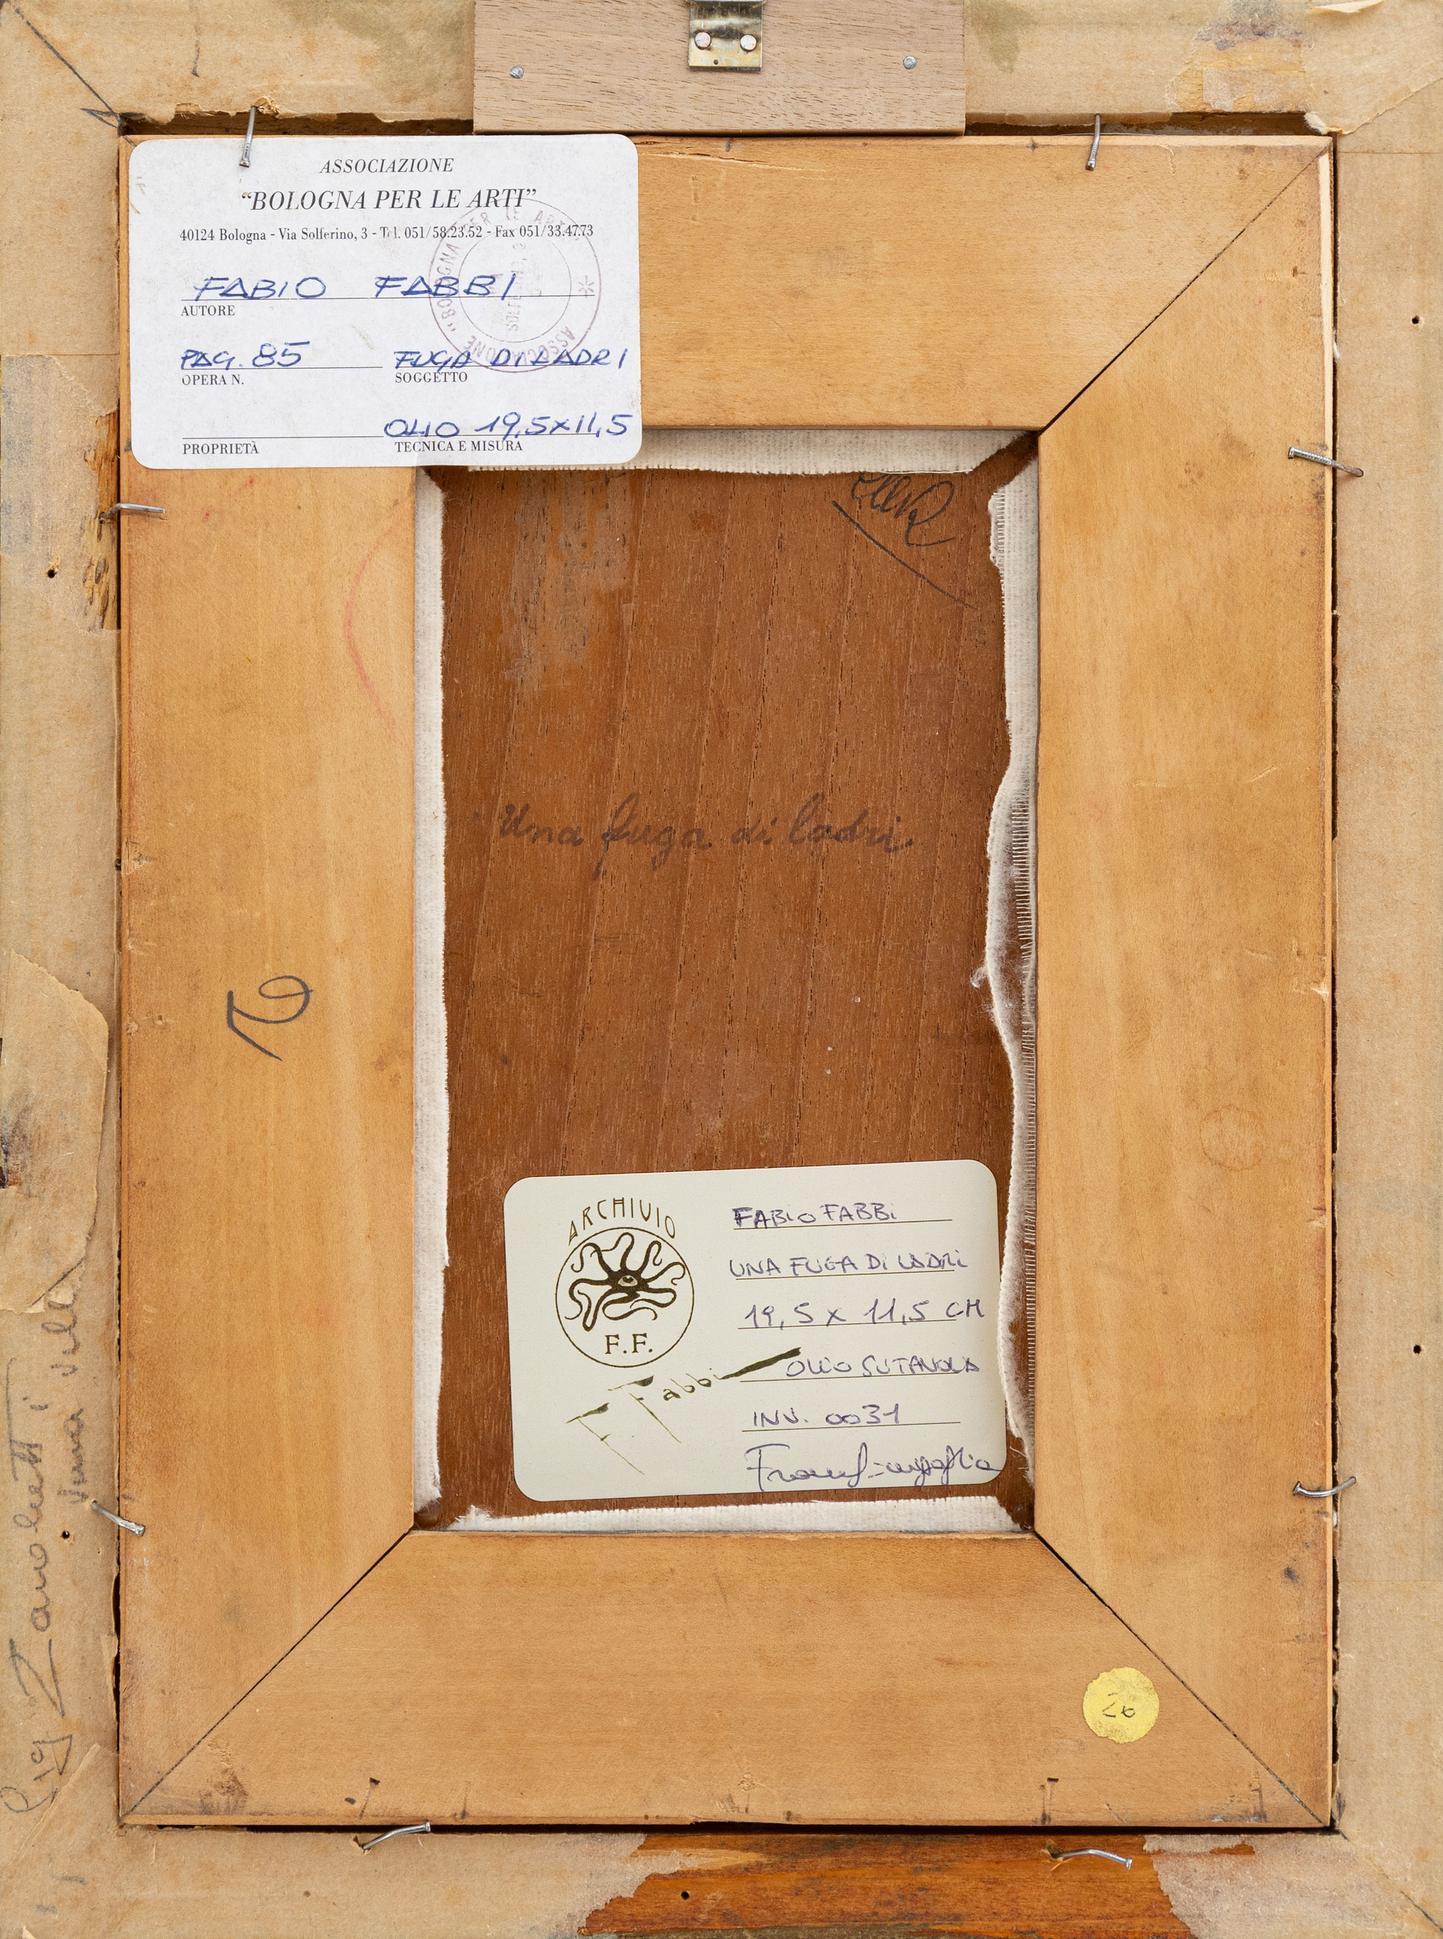 ASSOCIAZIONE
“BOLOGNA PER LE ARTI”
40124 Bologna - Via Solferino, 3 - Tel. 051/58.23.52 - Fax 051/33.47.73
FABIO FABBI
AUTORE
PAG. 85 FUGA DI LADRI
OPERA N. SOGGETTO
OLIO 19,5x11,5
PROPRIETÀ TECNICA E MISURA
"BOLOGNA PER LE ARTI" * ASSOCIAZIONE
Una fuga di ladri
ARCHIVIO
F.F.
F Fabbi
FABIO FABBI
UNA FUGA DI LADRI
19,5 x 11,5 CM
OLIO SU TAVOLA
INV. 0031
26